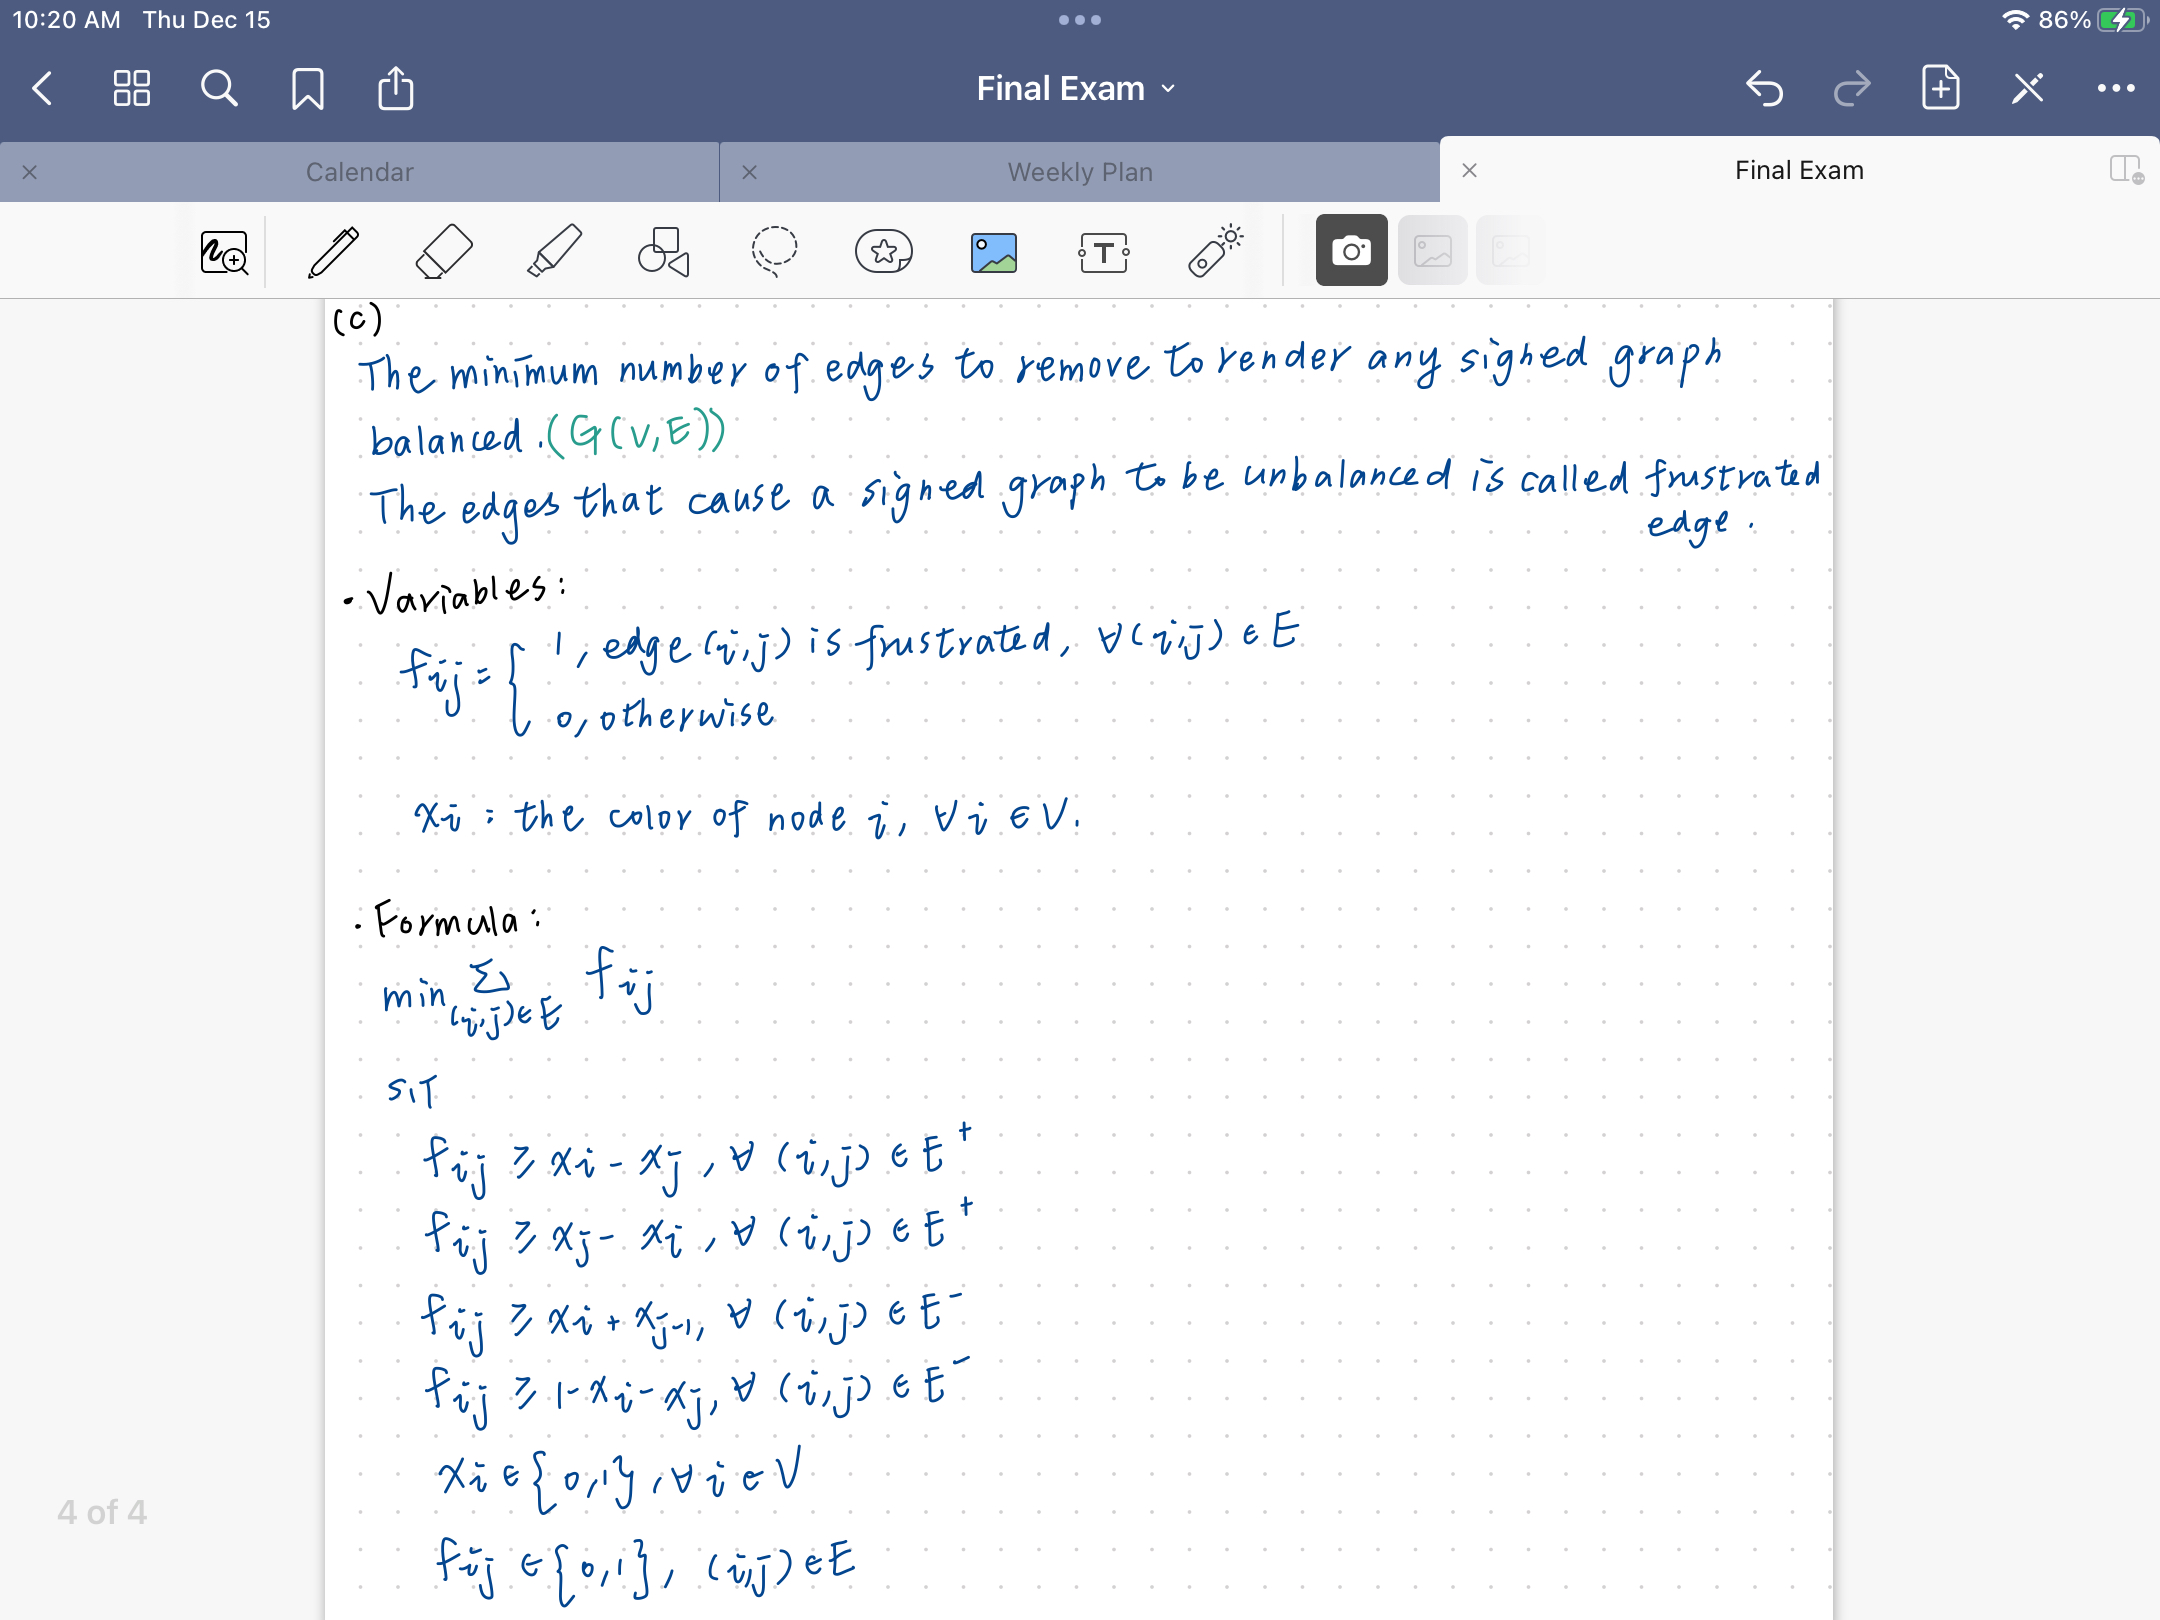 10:20 AM Thu Dec 15
86%
Final Exam
Calendar
Weekly Plan
Final Exam
T
(c)
The minimum number of edges to remove to render any signed graph
balanced. (G(V,E))
The edges that cause a signed graph to be unbalanced is called frustrated
edge.
· Variables:
fij = { 1, edge (i,j) is frustrated, ∀(i,j) ∈ E
0, otherwise
xi : the color of node i, ∀i ∈ V.
· Formula:
min Σ(i,j)∈E fij
S,T
fij ≥ xi - xj, ∀ (i,j) ∈ E+
fij ≥ xj - xi, ∀ (i,j) ∈ E+
fij ≥ xi + xj-1, ∀ (i,j) ∈ E-
fij ≥ 1-xi-xj, ∀ (i,j) ∈ E-
xi ∈ {0,1}, ∀i ∈ V
fij ∈ {0,1}, (i,j) ∈ E
4 of 4